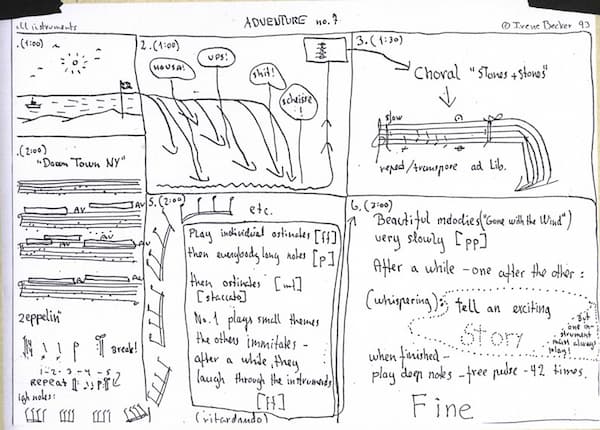 all instruments
ADVENTURE no. 7
© Irene Becker 93
. (1:00)
2. (1:00)
HOUSSA!
UPS!
shit!
scheisse!
3. (1:30)
Choral "Stones + Stones"
slow
repeat/transpore ad Lib.
. (2:00)
"Down Town NY"
AV
AV
AV
AV
AV
zeppelin"
Break!
1-2-3-4-5
REPEAT
igh notes:
5. (2:00)
etc.
Play individual ostinatos [ff]
then everybody long notes [p]
then ostinatos [mf]
[staccato]
No. 1 plays small themes
the others immitates -
after a while, they
laugh through the instruments
[ff]
(ritardando)
6. (3:00)
Beautiful melodies ("Gone with the Wind")
very slowly [pp]
After a while - one after the other:
(whispering): tell an exciting
Story
But one instrument must always play!
when finished -
play deep notes - free pulse - 42 times.
Fine